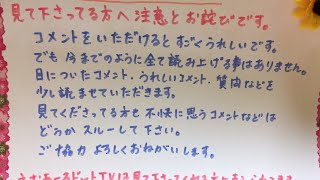 見て下さってる方へ注意とお詫びです。
コメントをいただけるとすごくうれしいです。
でも今までのように全て読み上げる事はありません。
目についたコメント・うれしいコメント、質問などを
少し読ませていただきます。
見てくださってる方も不快に思うコメントなどは
どうかスルーして下さい。
ご協力よろしくおねがいします。